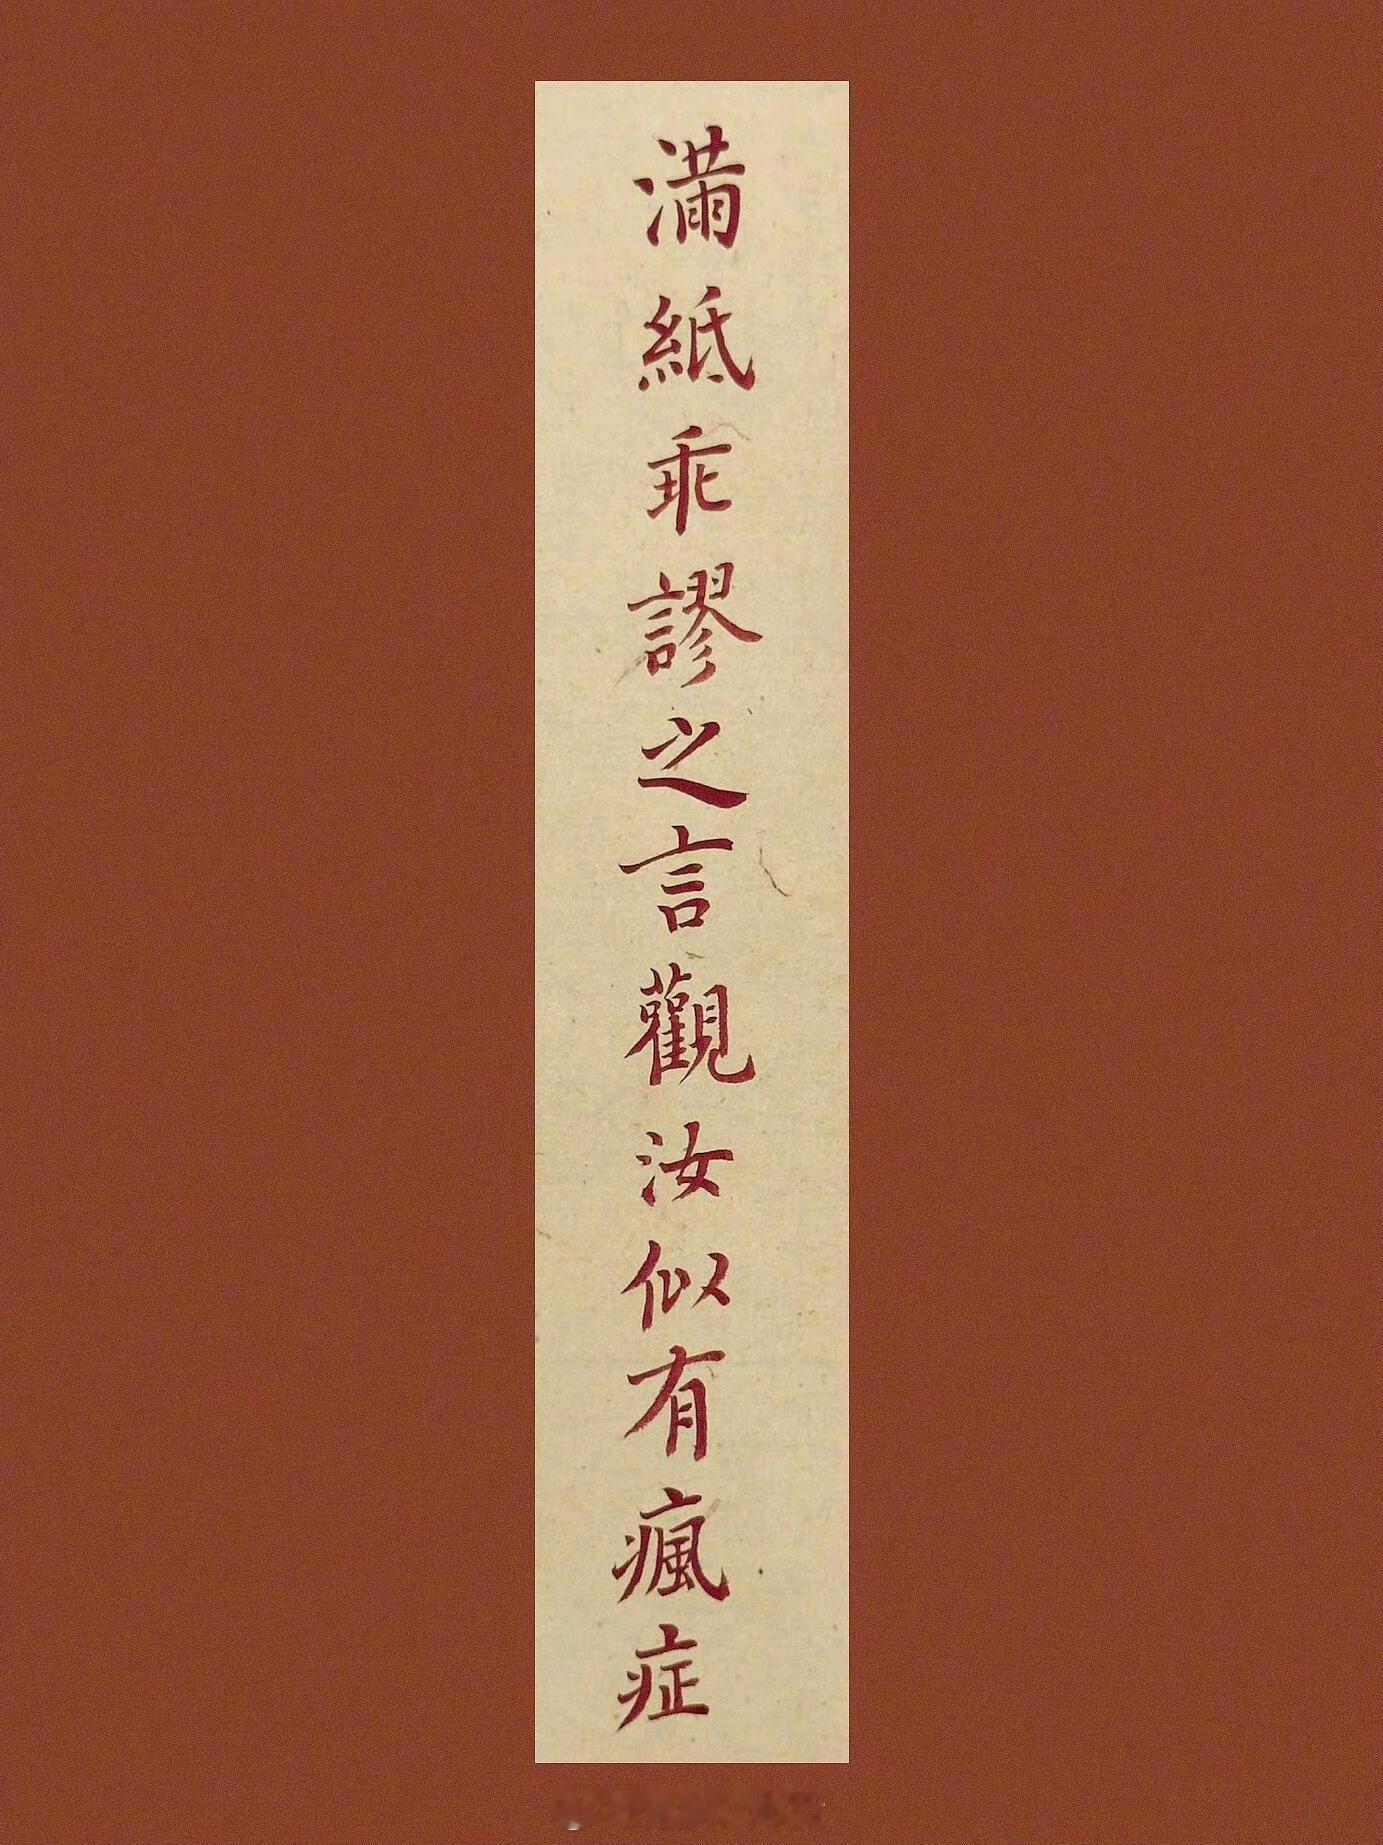 滿紙乖謬之言觀汝似有瘋症